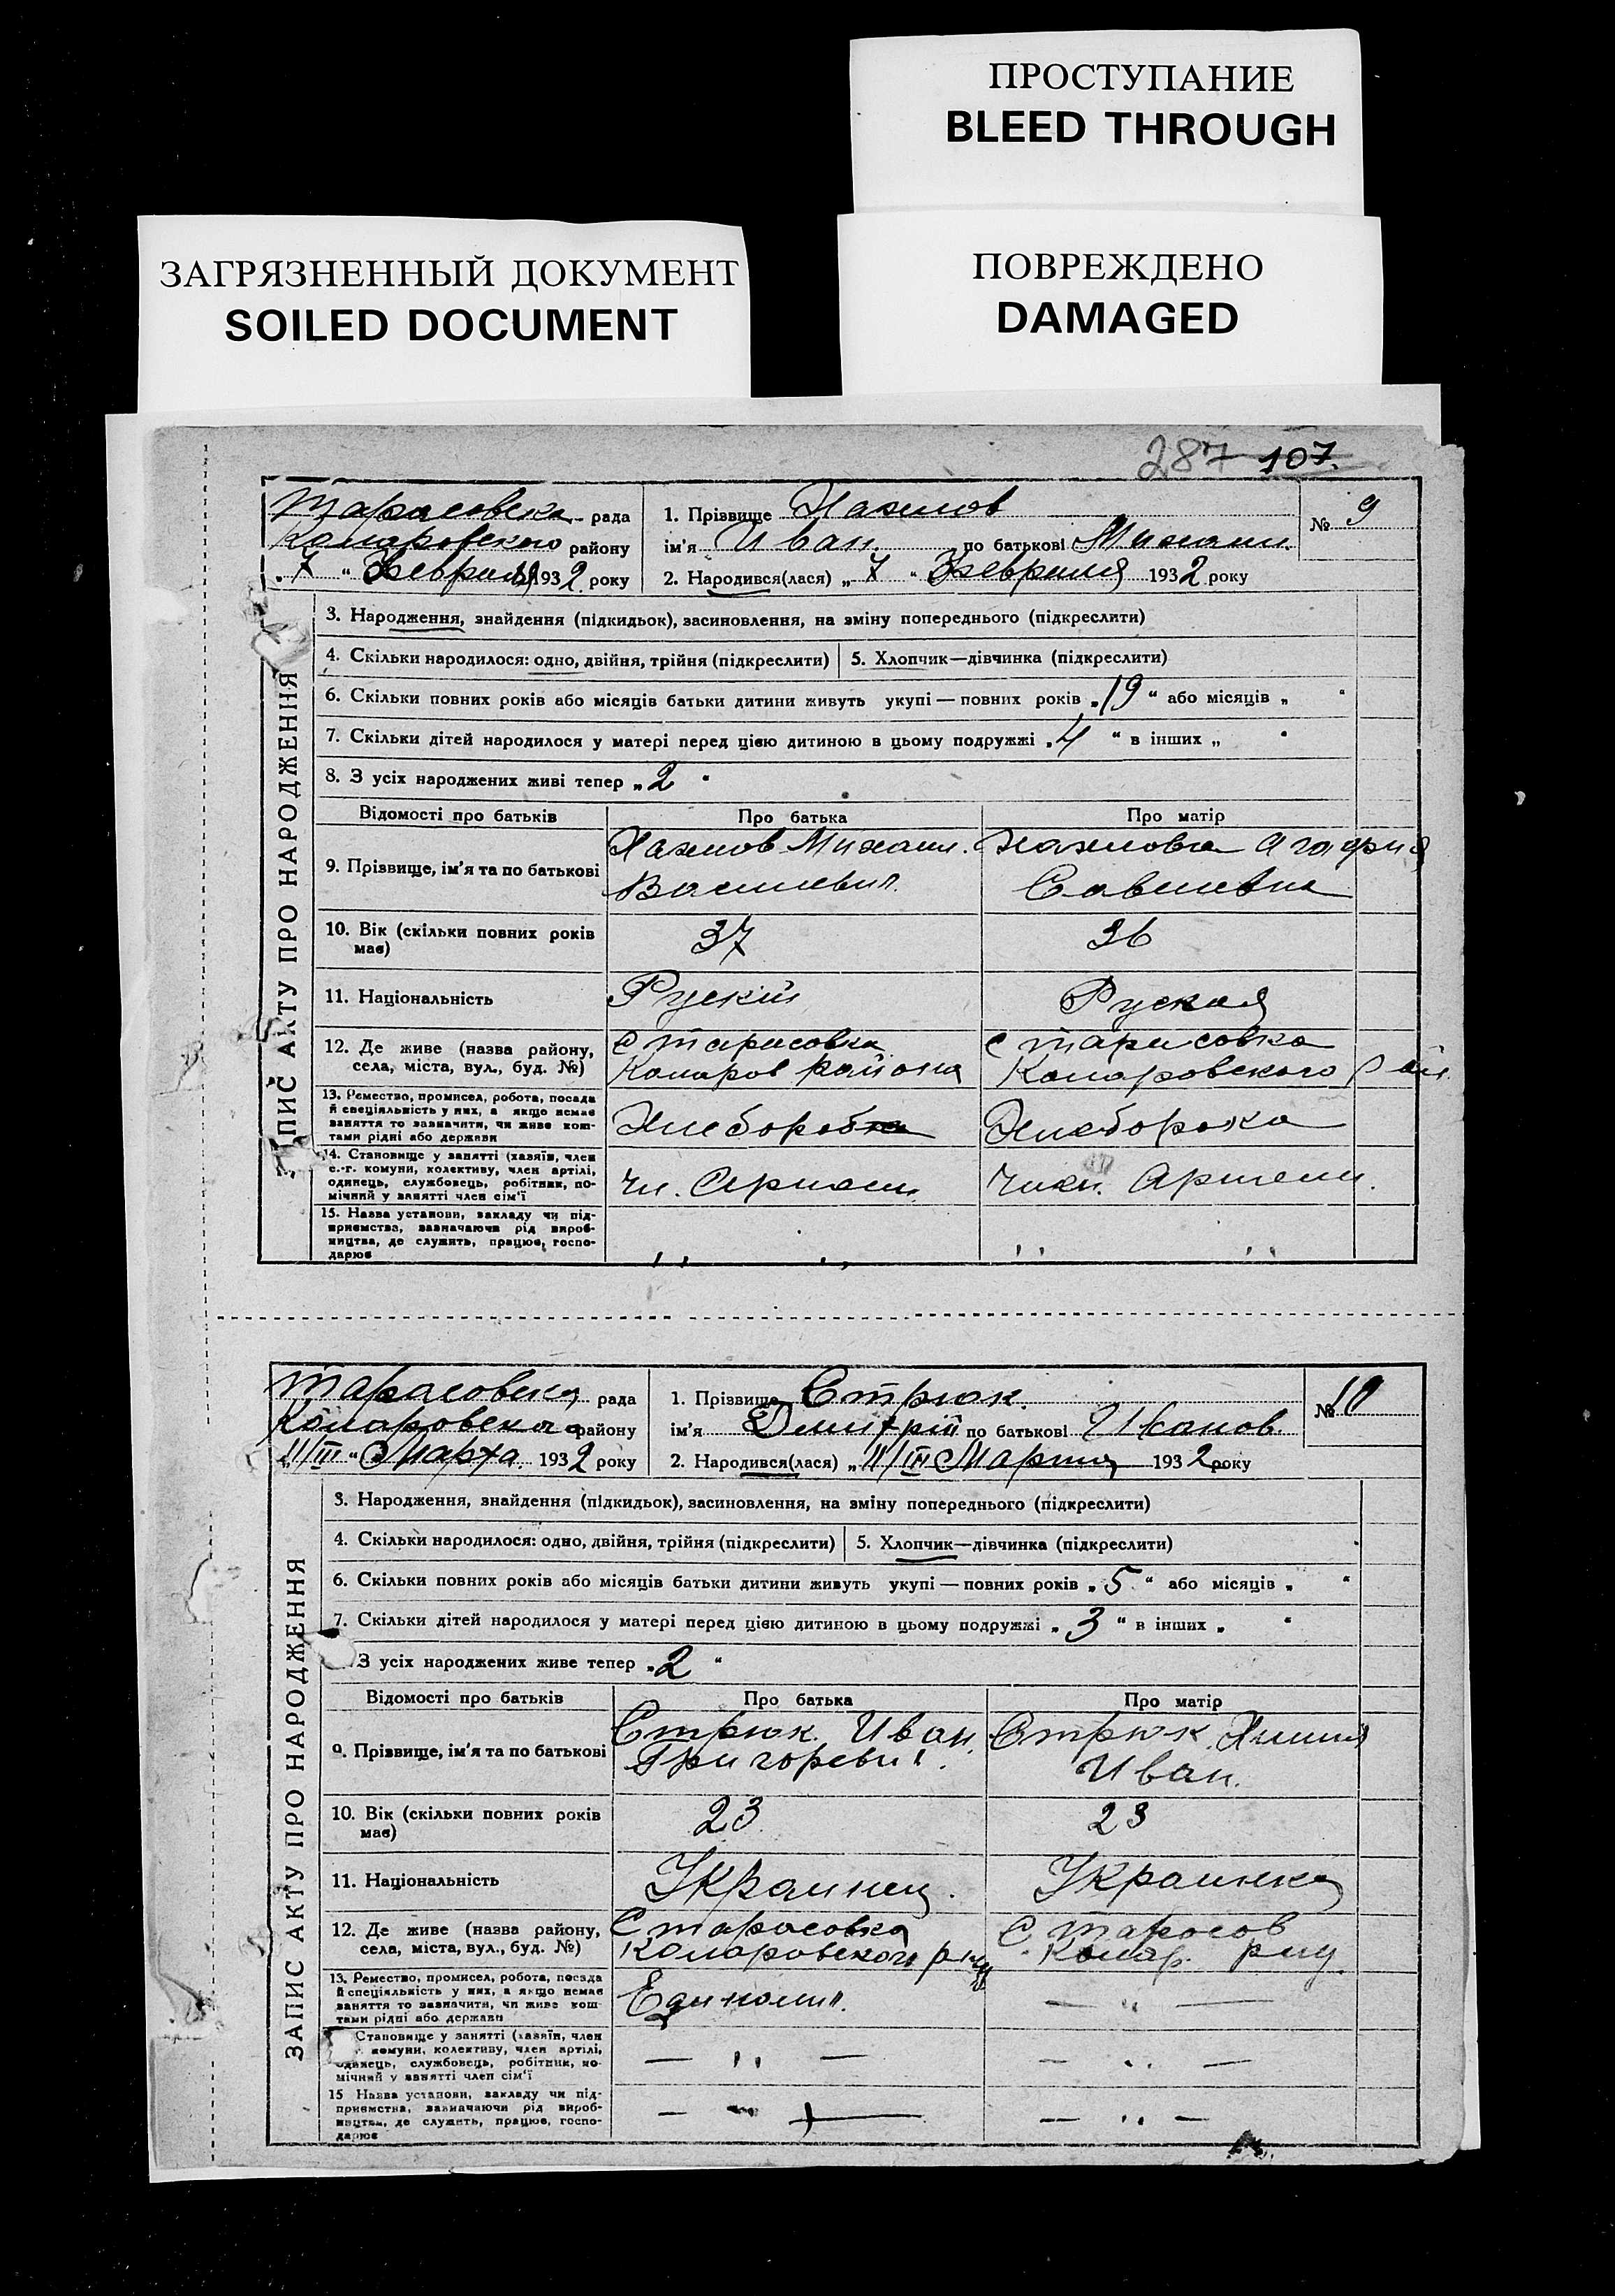 ПРОСТУПАНИЕ
BLEED THROUGH
ЗАГРЯЗНЕННЫЙ ДОКУМЕНТ
SOILED DOCUMENT
ПОВРЕЖДЕНО
DAMAGED
287 107.
Тарасовска рада
Комаровского району
„7“ Февраля 1932 року
1. Прізвище
ім'я Иван по батькові Михаил.
2. Народився(лася) „7“ Февраля 1932 року
№ 9
ЗАПИС АКТУ ПРО НАРОДЖЕННЯ
3. Народження, знайдення (підкидьок), засиновлення, на зміну попереднього (підкреслити)
4. Скільки народилося: одно, двійня, трійня (підкреслити) 5. Хлопчик—дівчинка (підкреслити)
6. Скільки повних років або місяців батьки дитини живуть укупі — повних років „19“ або місяців „ “
7. Скільки дітей народилося у матері перед цією дитиною в цьому подружжі „4“ в інших „ “
8. З усіх народжених живі тепер „2“
Відомості про батьків Про батька Про матір
9. Прізвище, ім'я та по батькові
Михаил.
10. Вік (скільки повних років має) 37 36
11. Національність Рускій Руская
12. Де живе (назва району, села, міста, вул., буд. №)
с Тарасовка с Тарасовка
Комаров района Комаровского рай.
13. Ремество, промисел, робота, посада
й спеціяльність у них, а якщо немає
заняття то зазначити, чи живе кош-
тами рідні або держави
14. Становище у занятті (хазяїн, член
с.-г. комуни, колективу, член артілі,
одинець, службовець, робітник, по-
мічний у занятті член сім'ї
Чл. Артели Член. Артели.
15. Назва установи, закладу чи під-
приємства, зазначаючи рід вироб-
ництва, де служить, працює, госпо-
дарює
Тарасовска рада
Комаровского району
„11/III“ Марта 1932 року
1. Прізвище Стрюк.
ім'я Дмитрій по батькові Иванов.
2. Народився(лася) „11/III Марта 1932 року
№ 10
ЗАПИС АКТУ ПРО НАРОДЖЕННЯ
3. Народження, знайдення (підкидьок), засиновлення, на зміну попереднього (підкреслити)
4. Скільки народилося: одно, двійня, трійня (підкреслити) 5. Хлопчик—дівчинка (підкреслити)
6. Скільки повних років або місяців батьки дитини живуть укупі — повних років „5“ або місяців „ “
7. Скільки дітей народилося у матері перед цією дитиною в цьому подружжі „3“ в інших „ “
З усіх народжених живе тепер „2“
Відомості про батьків Про батька Про матір
9. Прізвище, ім'я та по батькові
Стрюк Иван. Стрюк
Григоревич. Иван.
10. Вік (скільки повних років має) 23 23
11. Національність Украинец. Украинка
12. Де живе (назва району, села, міста, вул., буд. №)
С Тарасовка С Тарасов
Комаровского р-ну Комар. рну
13. Ремество, промисел, робота, посада
й спеціяльність у них, а якщо немає
заняття то зазначити, чи живе кош-
тами рідні або держави
Единолич. — „ —
Становище у занятті (хазяїн, член
комуни, колективу, член артілі,
одинець, службовець, робітник, по-
мічний у занятті член сім'ї
— „ — — „ —
15 Назва установи, закладу чи під-
приємства, зазначаючи рід вироб-
ництва, де служить, працює, госпо-
дарює
— „ — — „ —